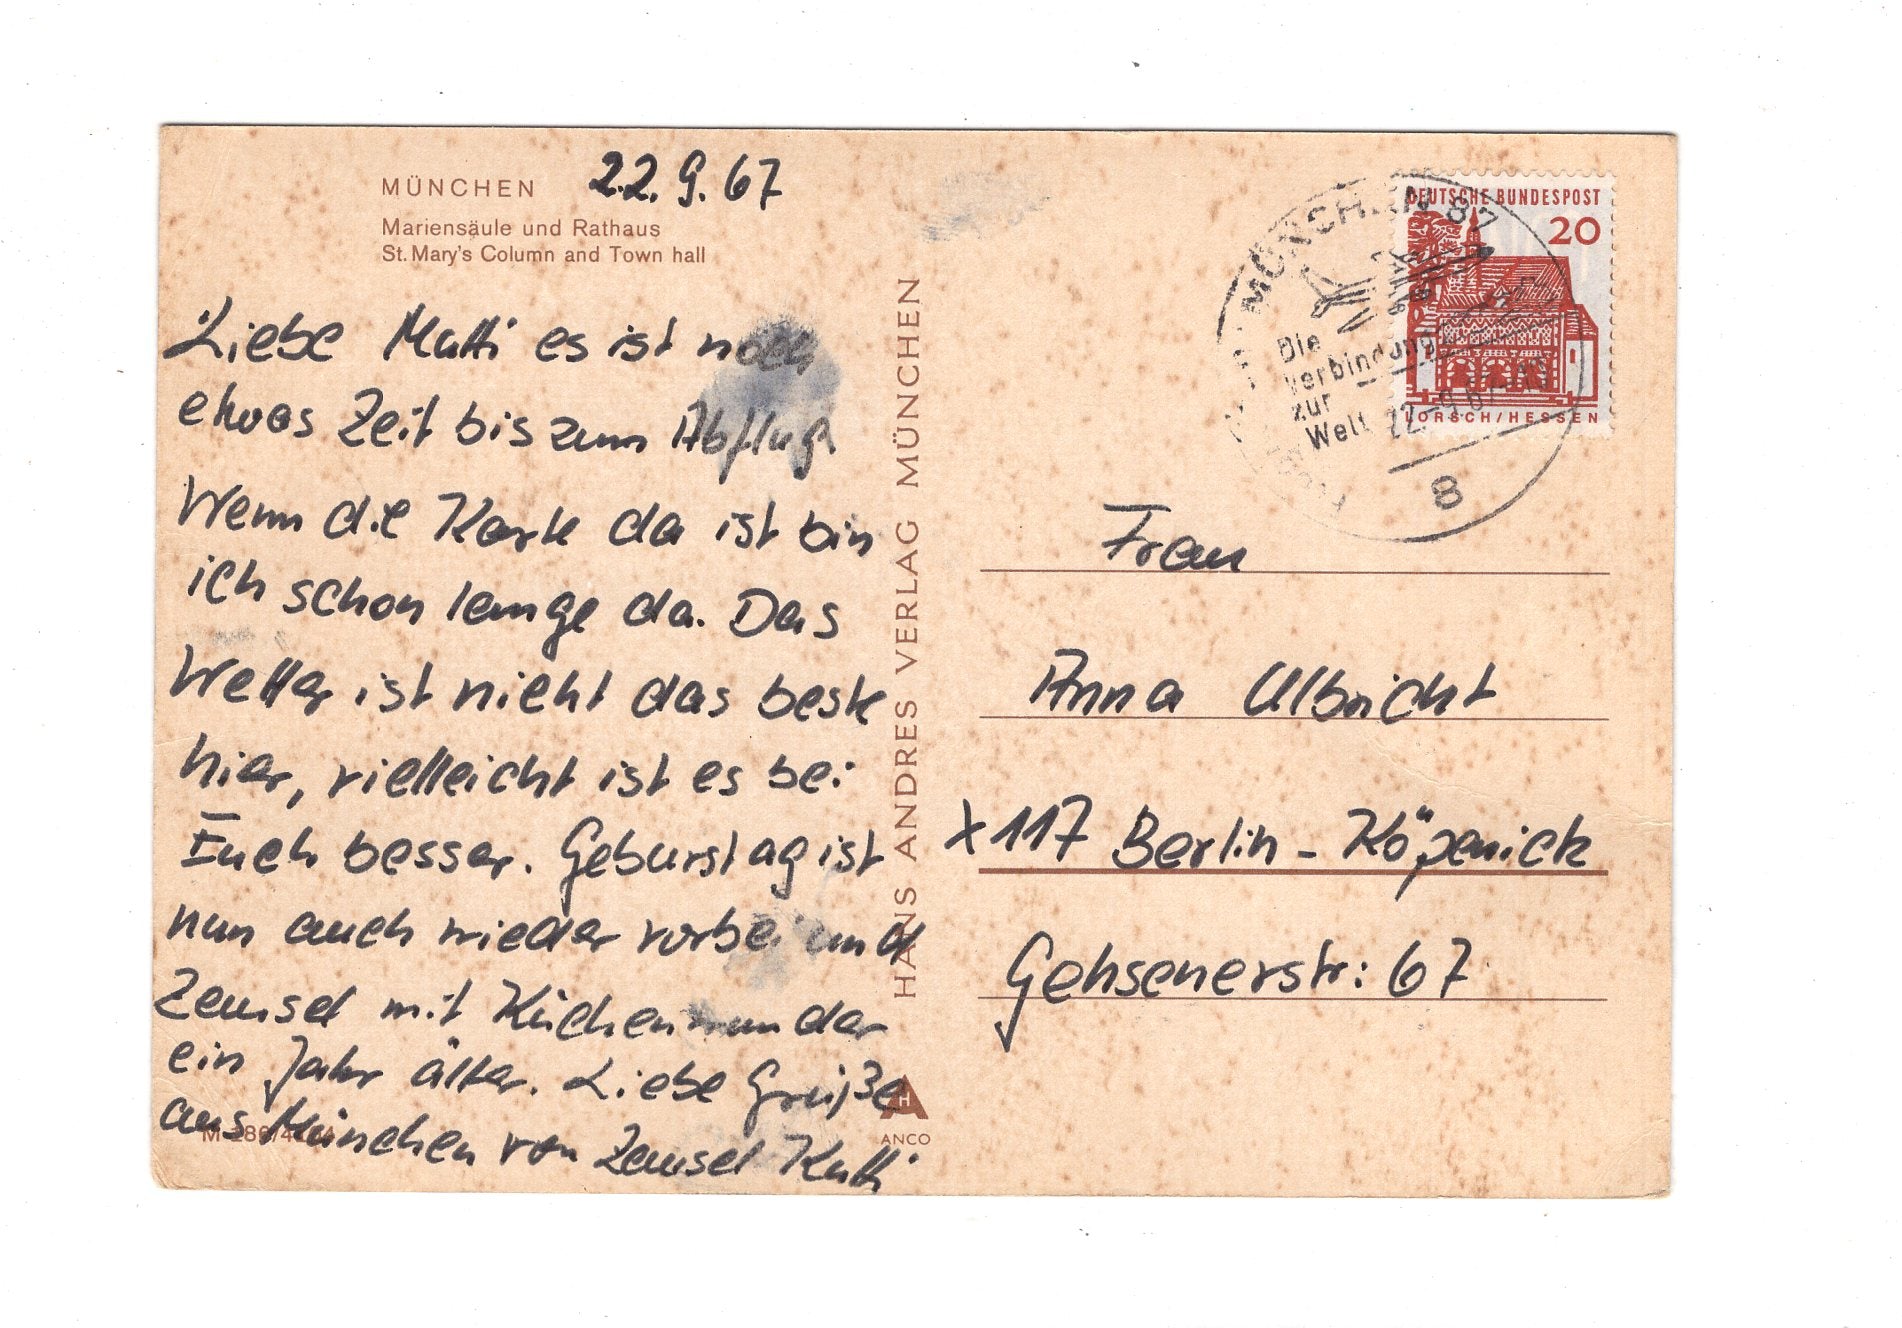 MÜNCHEN 22.9.67
Mariensäule und Rathaus
St. Mary's Column and Town hall
Liebe Mutti es ist noch
etwas Zeit bis zum Abflug.
Wenn die Karte da ist bin
ich schon lange da. Das
Wetter ist nicht das beste
hier, vielleicht ist es bei
Euch besser. Geburstag ist
nun auch wieder vorbei und
mit
ein Jahr älter. Liebe Grüße
aus München von
M
HANS ANDRES VERLAG MÜNCHEN
H
ANCO
MÜNCHEN 87
Die
Verbindung
zur
Welt 22.-9.67
8
DEUTSCHE BUNDESPOST
20
LORSCH/HESSEN
Frau
Anna Ulbricht
X 117 Berlin - Köpenick
Gehsenerstr: 67